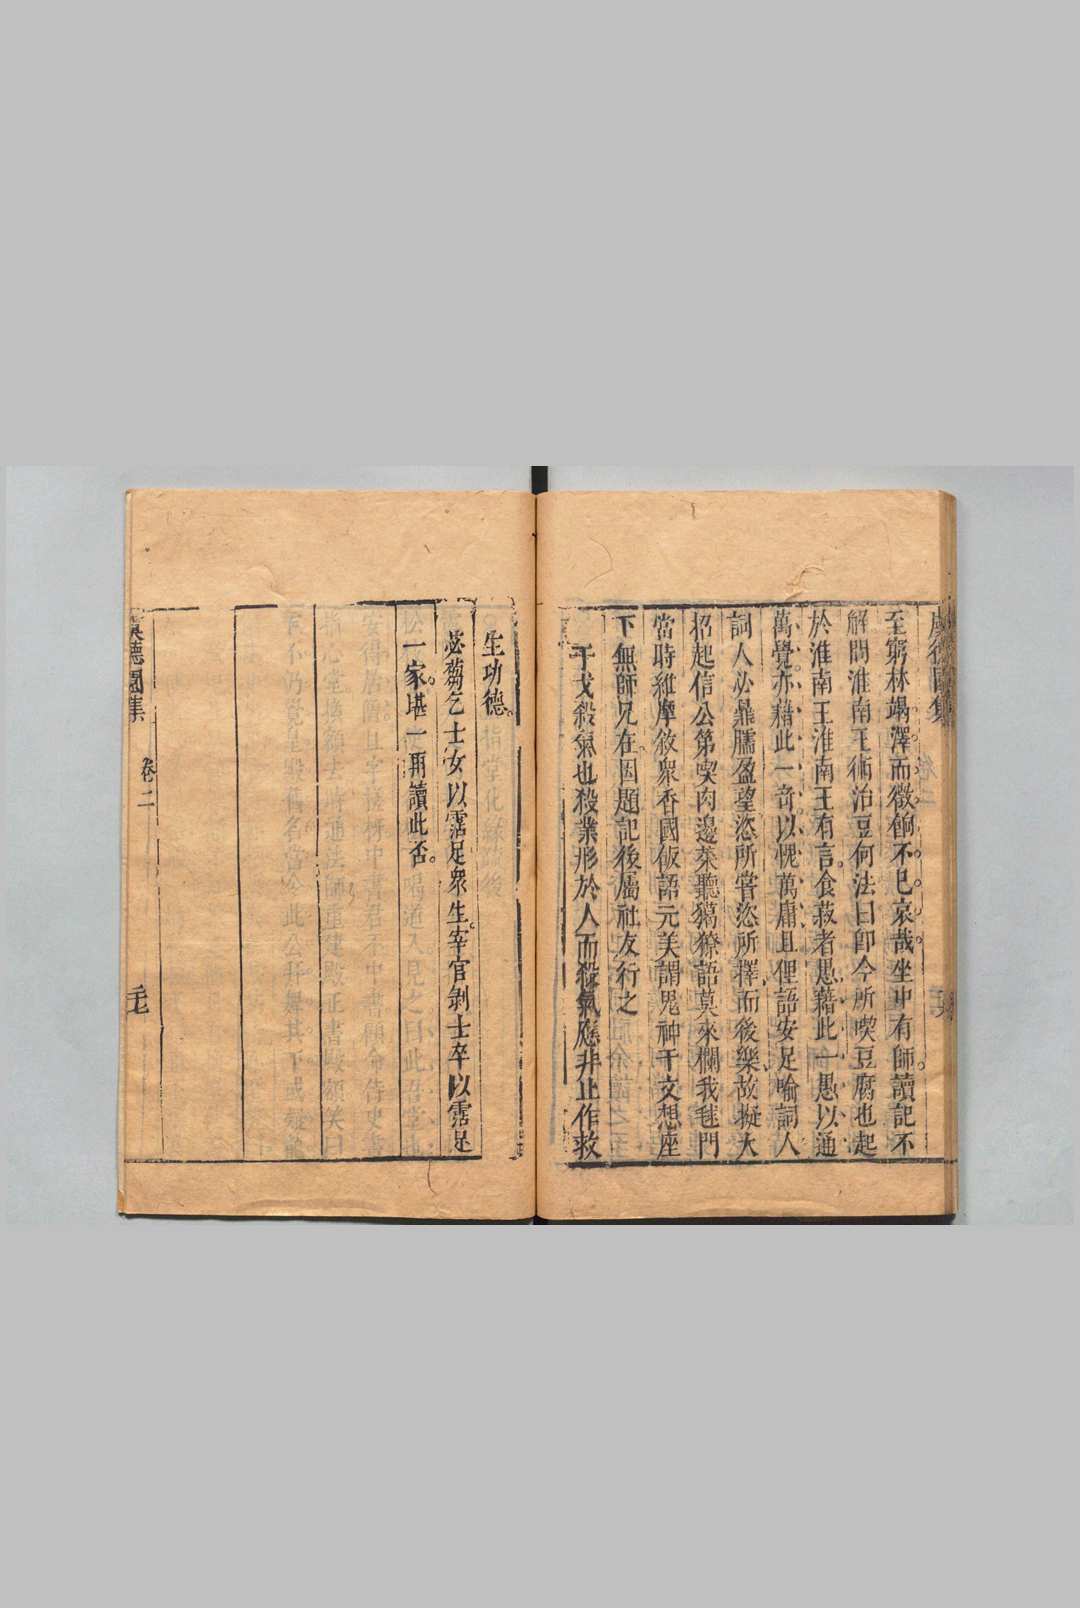 至窮林竭澤而徵餉不巳哀哉坐中有師讀記不
解問淮南王術治豆何法曰卽今所喫豆腐也起
於淮南王淮南王有言食菽者愚藉此一愚以通
萬覺亦藉此一奇以愧萬庸且俚語安足喻詞人
詞人必鼎臑盈望恣所嘗恣所擇而後樂故擬大
招起信公第喫肉邊菜聽獦獠語莫來欄我毬門
當時維摩敘衆香國飯語元美謂鬼神干文想座
下無師兄在因題記後屬社友行之
干戈殺氣也殺業形於人而殺氣應非止作救
生功德
苾蒭乞士女以霑足衆生宰官剝士卒以霑足
一家堪一再讀此否
虞德園集
卷二